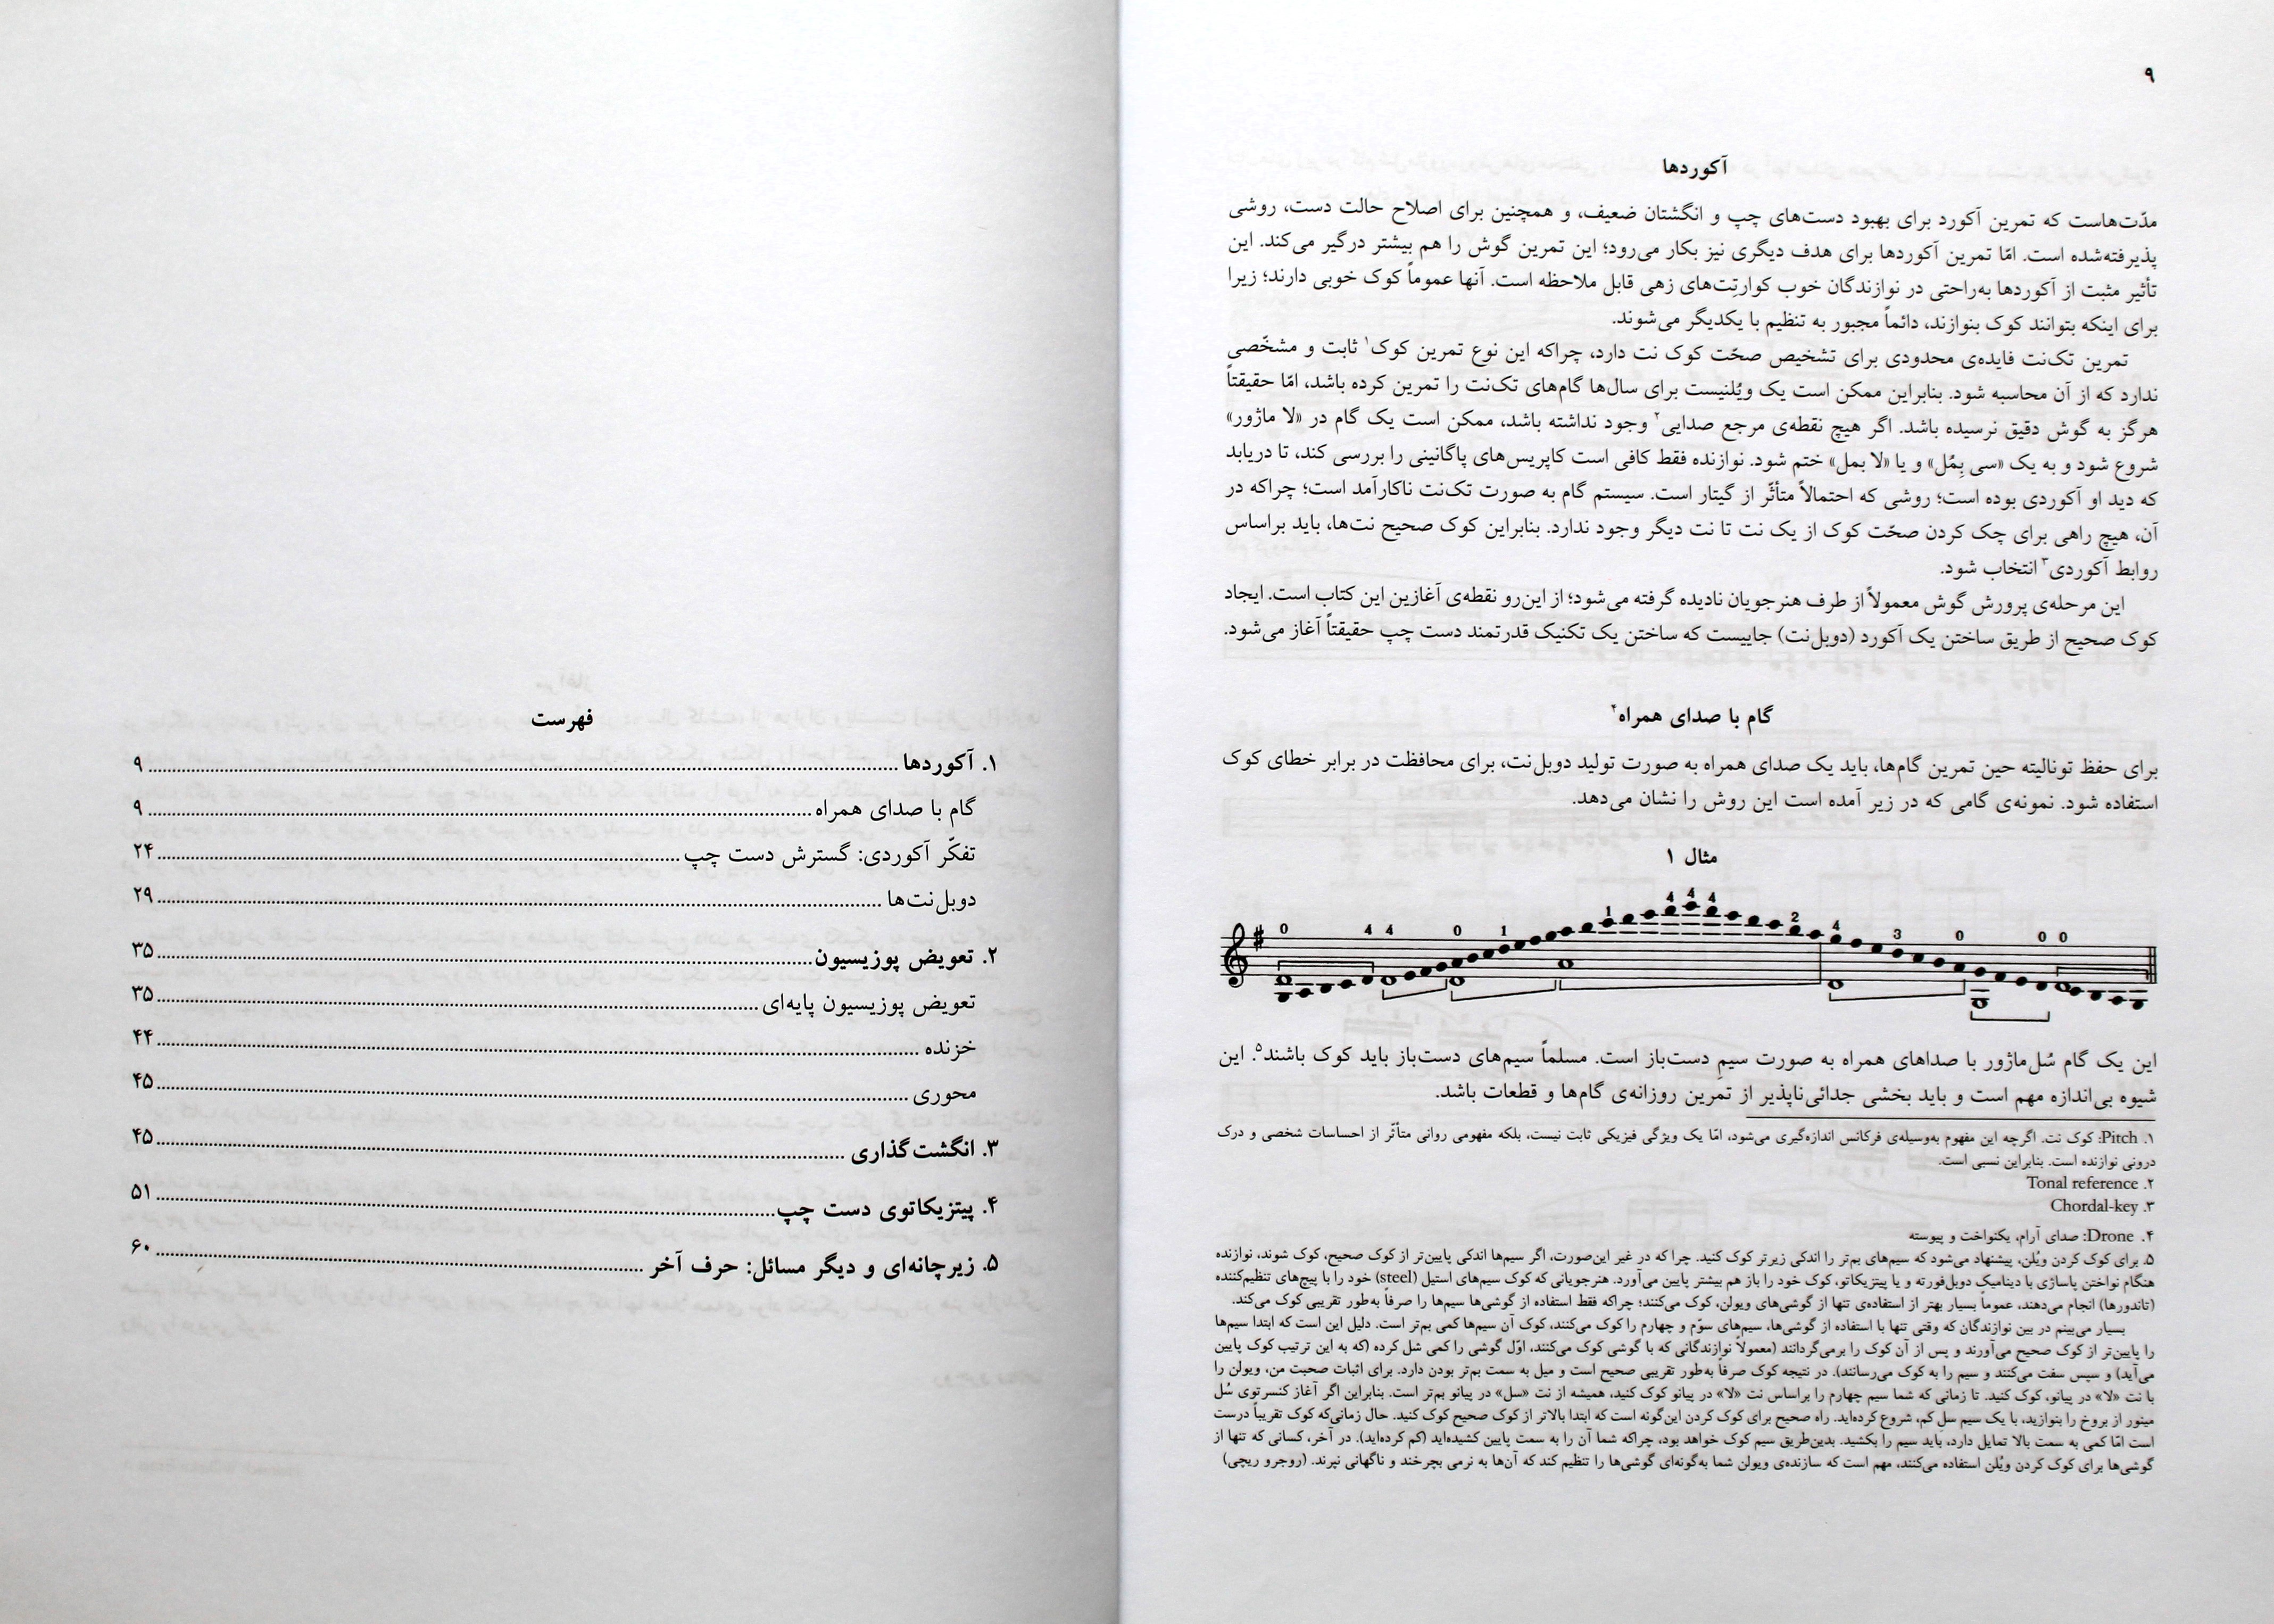 ۹
آکوردها
مدّت‌هاست که تمرین آکورد برای بهبود دست‌های چپ و انگشتان ضعیف، و همچنین برای اصلاح حالت دست، روشی
پذیرفته‌شده است. امّا تمرین آکوردها برای هدف دیگری نیز بکار می‌رود؛ این تمرین گوش را هم بیشتر درگیر می‌کند. این
تأثیر مثبت از آکوردها به‌راحتی در نوازندگان خوب کوارتِت‌های زهی قابل ملاحظه است. آنها عموماً کوک خوبی دارند؛ زیرا
برای اینکه بتوانند کوک بنوازند، دائماً مجبور به تنظیم با یکدیگر می‌شوند.
تمرین تک‌نت فایده‌ی محدودی برای تشخیص صحّت کوک نت دارد، چراکه این نوع تمرین کوک۱ ثابت و مشخّصی
ندارد که از آن محاسبه شود. بنابراین ممکن است یک ویُلنیست برای سال‌ها گام‌های تک‌نت را تمرین کرده باشد، امّا حقیقتاً
هرگز به گوش دقیق نرسیده باشد. اگر هیچ نقطه‌ی مرجع صدایی۲ وجود نداشته باشد، ممکن است یک گام در «لا ماژور»
شروع شود و به یک «سی بِمُل» و یا «لا بمل» ختم شود. نوازنده فقط کافی است کاپریس‌های پاگانینی را بررسی کند، تا دریابد
که دید او آکوردی بوده است؛ روشی که احتمالاً متأثّر از گیتار است. سیستم گام به صورت تک‌نت ناکارآمد است؛ چراکه در
آن، هیچ راهی برای چک کردن صحّت کوک از یک نت تا نت دیگر وجود ندارد. بنابراین کوک صحیح نت‌ها، باید براساس
روابط آکوردی۳ انتخاب شود.
این مرحله‌ی پرورش گوش معمولاً از طرف هنرجویان نادیده گرفته می‌شود؛ از این‌رو نقطه‌ی آغازین این کتاب است. ایجاد
کوک صحیح از طریق ساختن یک آکورد (دوبل‌نت) جاییست که ساختن یک تکنیک قدرتمند دست چپ حقیقتاً آغاز می‌شود.
گام با صدای همراه۴
برای حفظ تونالیته حین تمرین گام‌ها، باید یک صدای همراه به صورت تولید دوبل‌نت، برای محافظت در برابر خطای کوک
استفاده شود. نمونه‌ی گامی که در زیر آمده است این روش را نشان می‌دهد.
مثال ۱
0 4 4 0 1 1 4 4 4 2 4 3 0 0 0
این یک گام سُل‌ماژور با صداهای همراه به صورت سیمِ دست‌باز است. مسلماً سیم‌های دست‌باز باید کوک باشند۵. این
شیوه بی‌اندازه مهم است و باید بخشی جدائی‌ناپذیر از تمرین روزانه‌ی گام‌ها و قطعات باشد.
۱. Pitch: کوک نت. اگرچه این مفهوم به‌وسیله‌ی فرکانس اندازه‌گیری می‌شود، امّا یک ویژگی فیزیکی ثابت نیست، بلکه مفهومی روانی متأثّر از احساسات شخصی و درک
درونی نوازنده است. بنابراین نسبی است.
۲. Tonal reference
۳. Chordal-key
۴. Drone: صدای آرام، یکنواخت و پیوسته
۵. برای کوک کردن ویُلن، پیشنهاد می‌شود که سیم‌های بم‌تر را اندکی زیرتر کوک کنید. چرا که در غیر این‌صورت، اگر سیم‌ها اندکی پایین‌تر از کوک صحیح، کوک شوند، نوازنده
هنگام نواختن پاساژی با دینامیک دوبل‌فورته و یا پیتزیکاتو، کوک خود را باز هم بیشتر پایین می‌آورد. هنرجویانی که کوک سیم‌های استیل (steel) خود را با پیچ‌های تنظیم‌کننده
(تاندورها) انجام می‌دهند، عموماً بسیار بهتر از استفاده‌ی تنها از گوشی‌های ویولن، کوک می‌کنند؛ چراکه فقط استفاده از گوشی‌ها سیم‌ها را صرفاً به‌طور تقریبی کوک می‌کند.
بسیار می‌بینم در بین نوازندگان که وقتی تنها با استفاده از گوشی‌ها، سیم‌های سوّم و چهارم را کوک می‌کنند، کوک آن سیم‌ها کمی بم‌تر است. دلیل این است که ابتدا سیم‌ها
را پایین‌تر از کوک صحیح می‌آورند و پس از آن کوک را برمی‌گردانند (معمولاً نوازندگانی که با گوشی کوک می‌کنند، اوّل گوشی را کمی شل کرده (که به این ترتیب کوک پایین
می‌آید) و سپس سفت می‌کنند و سیم را به کوک می‌رسانند). در نتیجه کوک صرفاً به‌طور تقریبی صحیح است و میل به سمت بم‌تر بودن دارد. برای اثبات صحبت من، ویولن را
با نت «لا» در پیانو، کوک کنید. تا زمانی که شما سیم چهارم را براساس نت «لا» در پیانو کوک کنید، همیشه از نت «سل» در پیانو بم‌تر است. بنابراین اگر آغاز کنسرتوی سُل
مینور از بروخ را بنوازید، با یک سیم سل کم، شروع کرده‌اید. راه صحیح برای کوک کردن این‌گونه است که ابتدا بالاتر از کوک صحیح کوک کنید. حال زمانی‌که کوک تقریباً درست
است امّا کمی به سمت بالا تمایل دارد، باید سیم را بکشید. بدین‌طریق سیم کوک خواهد بود، چراکه شما آن را به سمت پایین کشیده‌اید (کم کرده‌اید). در آخر، کسانی که تنها از
گوشی‌ها برای کوک کردن ویُلن استفاده می‌کنند، مهم است که سازنده‌ی ویولن شما به‌گونه‌ای گوشی‌ها را تنظیم کند که آن‌ها به نرمی بچرخند و ناگهانی نپرند. (روجرو ریچی)
فهرست
۱. آکوردها ۹
گام با صدای همراه ۹
تفکّر آکوردی: گسترش دست چپ ۲۴
دوبل‌نت‌ها ۲۹
۲. تعویض پوزیسیون ۳۵
تعویض پوزیسیون پایه‌ای ۳۵
خزنده ۴۴
محوری ۴۵
۳. انگشت‌گذاری ۴۵
۴. پیتزیکاتوی دست چپ ۵۱
۵. زیرچانه‌ای و دیگر مسائل: حرف آخر ۶۰